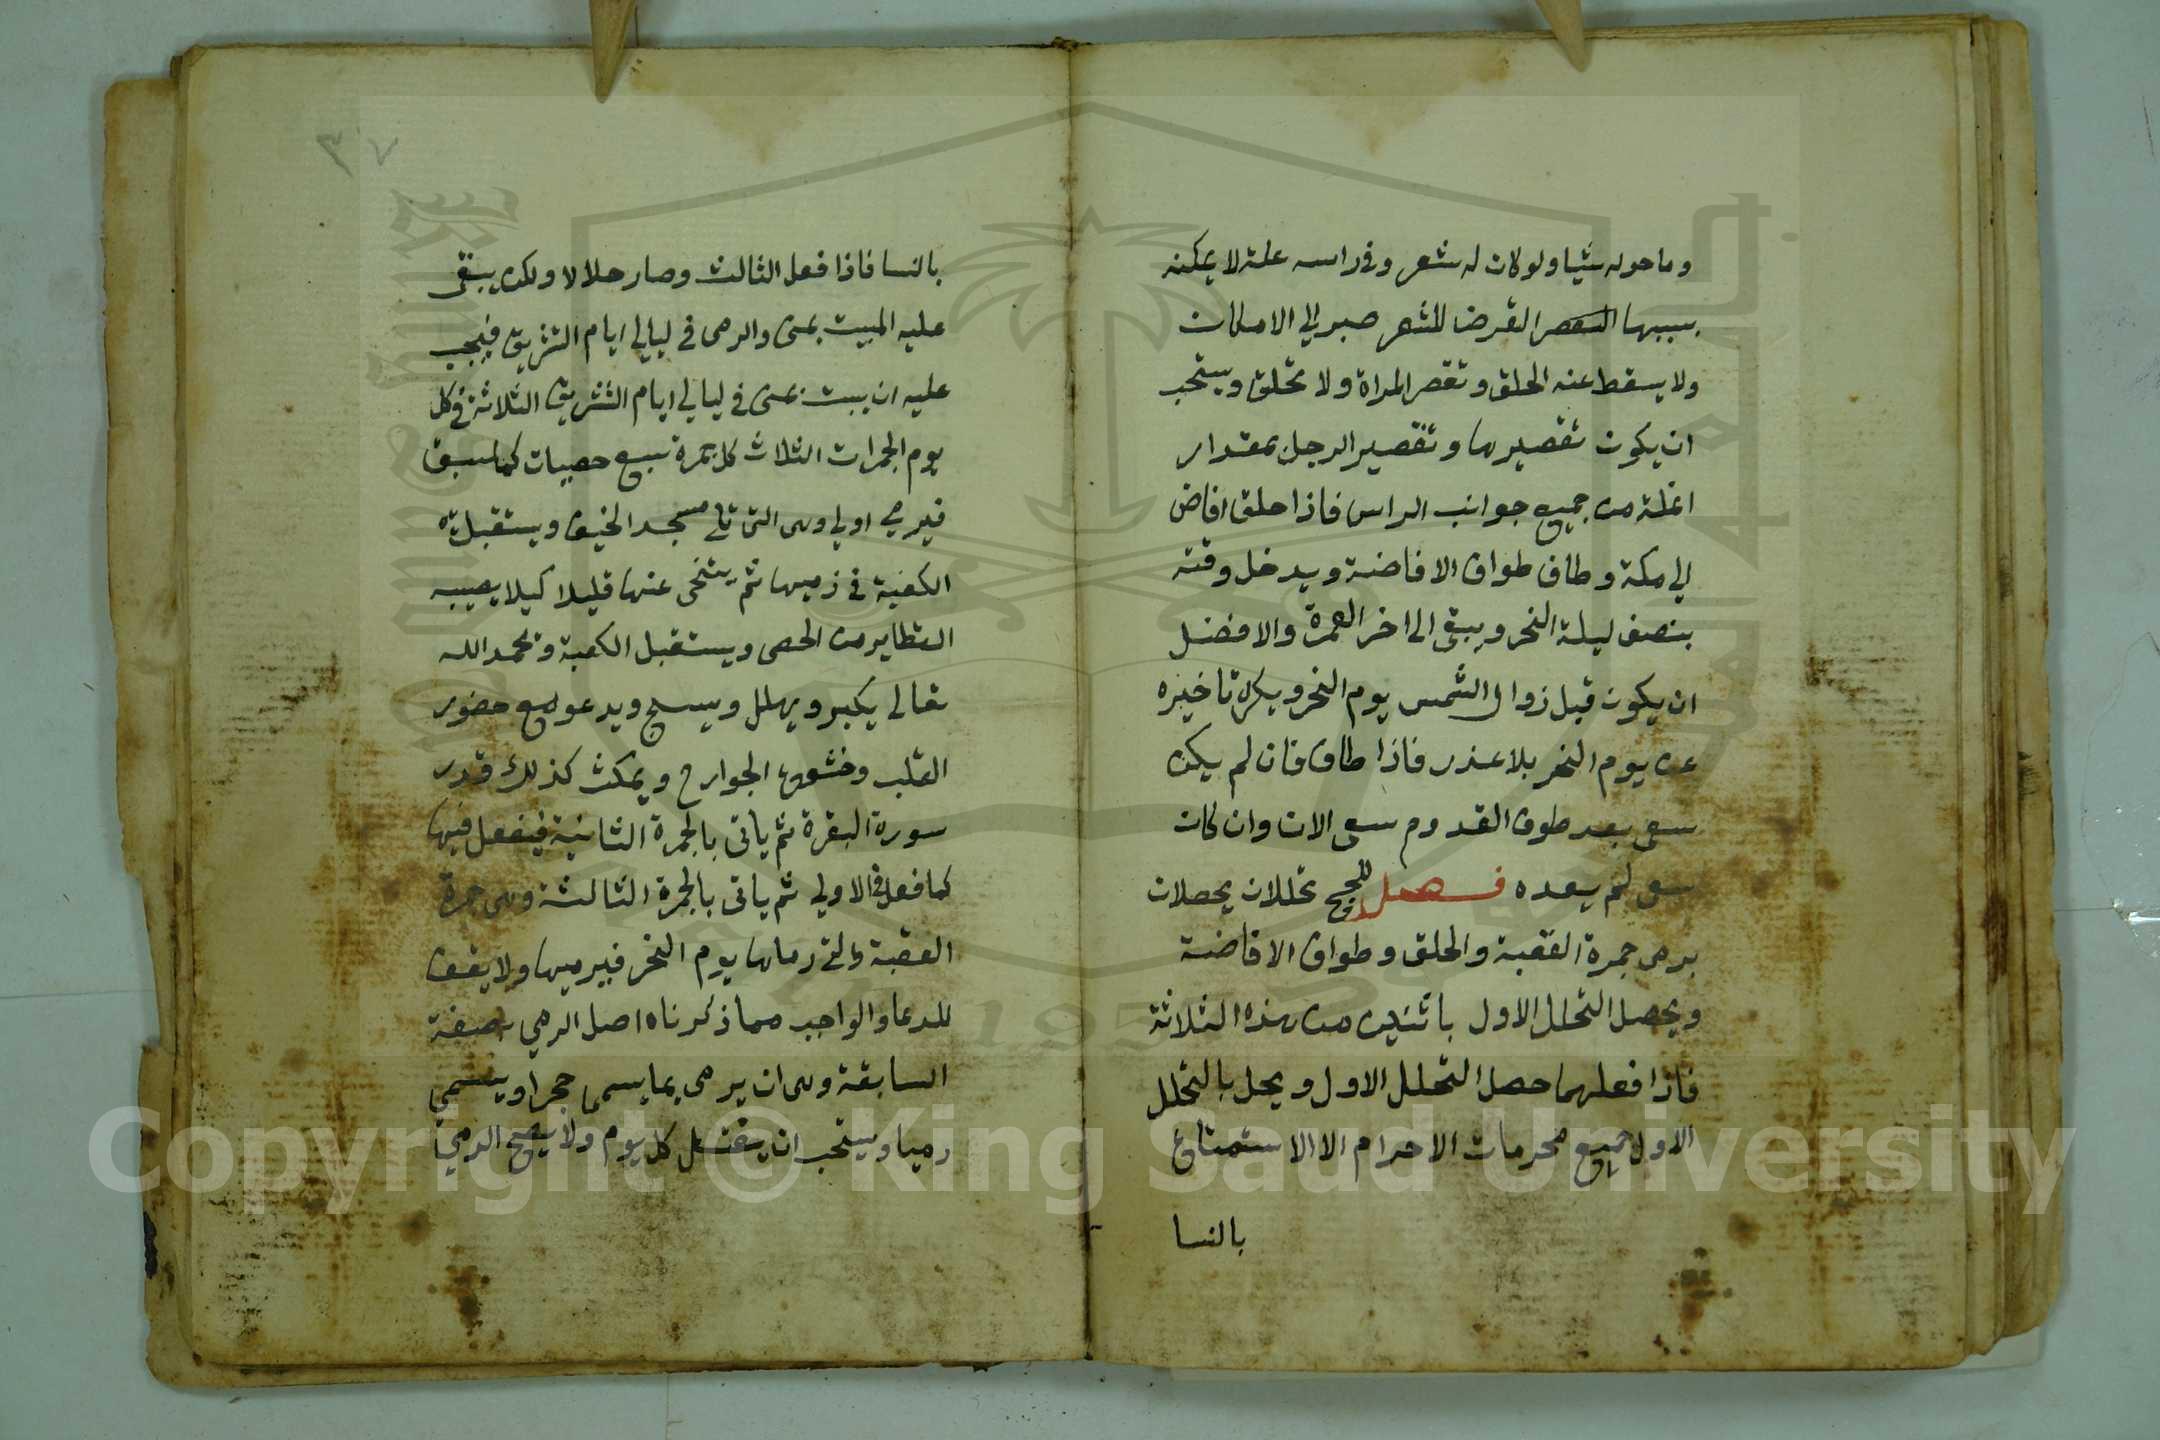 وما حوله شيا ولو كان له شعر وفي راسه علة لا يمكنه
بسببها التعرض للشعر صبر الي الامكان
ولا يسقط عنه الحلق وتقصر المراة ولا تحلق ويستحب
ان يكون تقصيرها وتقصير الرجل بمقدار
انملة من جميع جوانب الراس فاذا حلق افاض
الي مكة وطاف طواف الافاضة ويدخل وقته
بنصف ليلة النحر ويبقى الى اخر العمرة والافضل
ان يكون قبل زوال الشمس يوم النحر ويكره تاخيره
عن يوم النحر بلا عذر فاذا طاف فان لم يكن
سعى بعد طوف القدوم سعى الان وان كان
سعى لم يعده فصل للحج تحللان يحصلان
برمى جمرة العقبة والحلق وطواف الافاضة
ويحصل التحلل الاول باثنين من هذه الثلاثة
فاذا فعلهما حصل التحلل الاول ويحل بالتحلل
الاول جميع محرمات الاحرام الا الاستمتاع
بالنسا
٣٧
بالنسا فاذا فعل الثالث وصار حلالا ولكن يبقى
عليه المبيت بمنى والرمى في ليالي ايام التشريق فيجب
عليه ان يبت بمنى في ليالي ايام التشريق الثلاثة في كل
يوم الجمرات الثلاث كل جمرة سبع حصيات كما سبق
فيرمي اولي وهى التى تلي مسجد الخيف ويستقبل
الكعبة في رميها ثم يتنحى عنها قليلا كيلا يصيبه
المتطاير من الحصى ويستقبل الكعبة وتحمد الله
تعالى يكبر ويهلل ويسبح ويدعو مع حضور
القلب وخشوع الجوارح ويمكث كذلك قدر
سورة البقرة ثم ياتى بالجمرة الثانية فيفعل فيها
كما فعل في الاولي ثم ياتى بالجمرة الثالثة وهى جمرة
العقبة والتي رماها يوم النحر فيرميها ولا يقف
للدعا والواجب مما ذكرناه اصل الرمي بصفة
السابقة وهى ان يرمى بما يسمى حجرا ويسمي
رميا ويستحب ان يغتسل كل يوم ولا يصح الرمي
Copyright © King Saud University